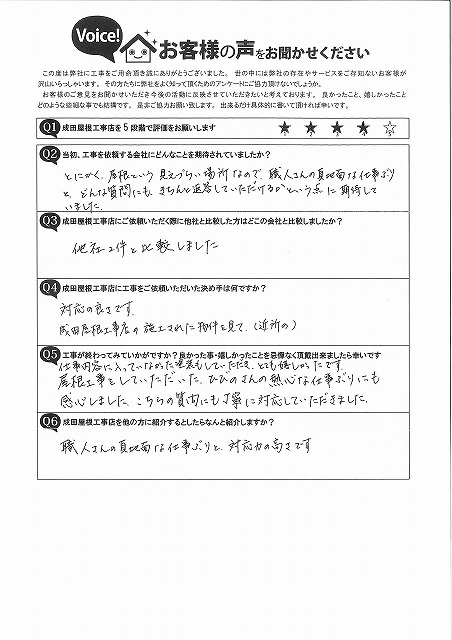 Voice!
お客様の声をお聞かせください
この度は弊社に工事をご用命頂き誠にありがとうございました。 世の中には弊社の存在やサービスをご存知ないお客様が
沢山いらっしゃいます。 その方たちに弊社をよく知って頂くためのアンケートにご協力頂けないでしょうか。
お客様のご意見をお聞かせいただき今後の活動に反映させていただきたいと考えております。 良かったこと、嬉しかったこと
どのような些細な事でも結構です。 是非ご協力お願い致します。 出来るだけ具体的に書いて頂ければ幸いです。
Q1 成田屋根工事店を5段階で評価をお願いします ★1 ★2 ★3 ★4 ☆5
Q2 当初、工事を依頼する会社にどんなことを期待されていましたか?
とにかく、屋根という見えづらい場所なので、職人さんの真地面な仕事ぶり
と、どんな質問にも、きちんと返答していただけるかという点に期待して
いました。
Q3 成田屋根工事店にご依頼いただく際に他社と比較した方はどこの会社と比較しましたか?
他社2件と比較しました
Q4 成田屋根工事店に工事をご依頼いただいた決め手は何ですか?
対応の良さです。
成田屋根工事店の施工された物件を見て、(近所の)
Q5 工事が終わってみていかがですか?良かった事・嬉しかったことを忌憚なく頂戴出来ましたら幸いです
仕事内容に入っていなかった塗装もしていただき、とても嬉しかったです。
屋根工事をしていただいた、ひびのさんの熱心な仕事ぶりにも
感心しました。こちらの質問にも丁寧に対応していただきました。
Q6 成田屋根工事店を他の方に紹介するとしたらなんと紹介しますか?
職人さんの真地面な仕事ぶりと、対応力の高さです